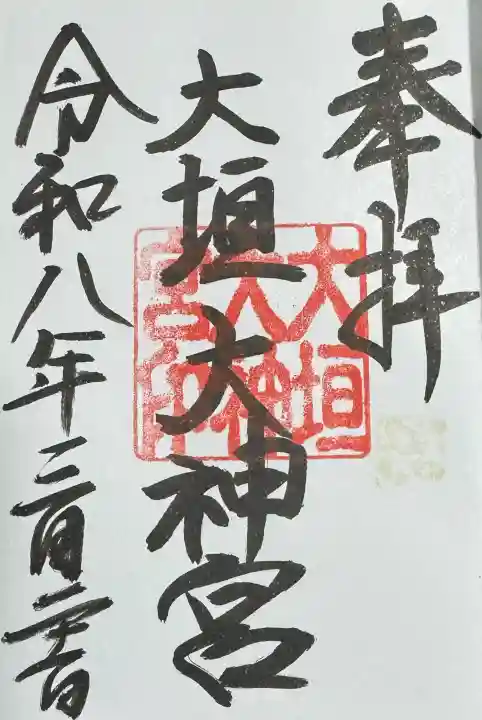 奉拝
大垣大神宮
令和八年三月二十日
大垣
大神
宮印